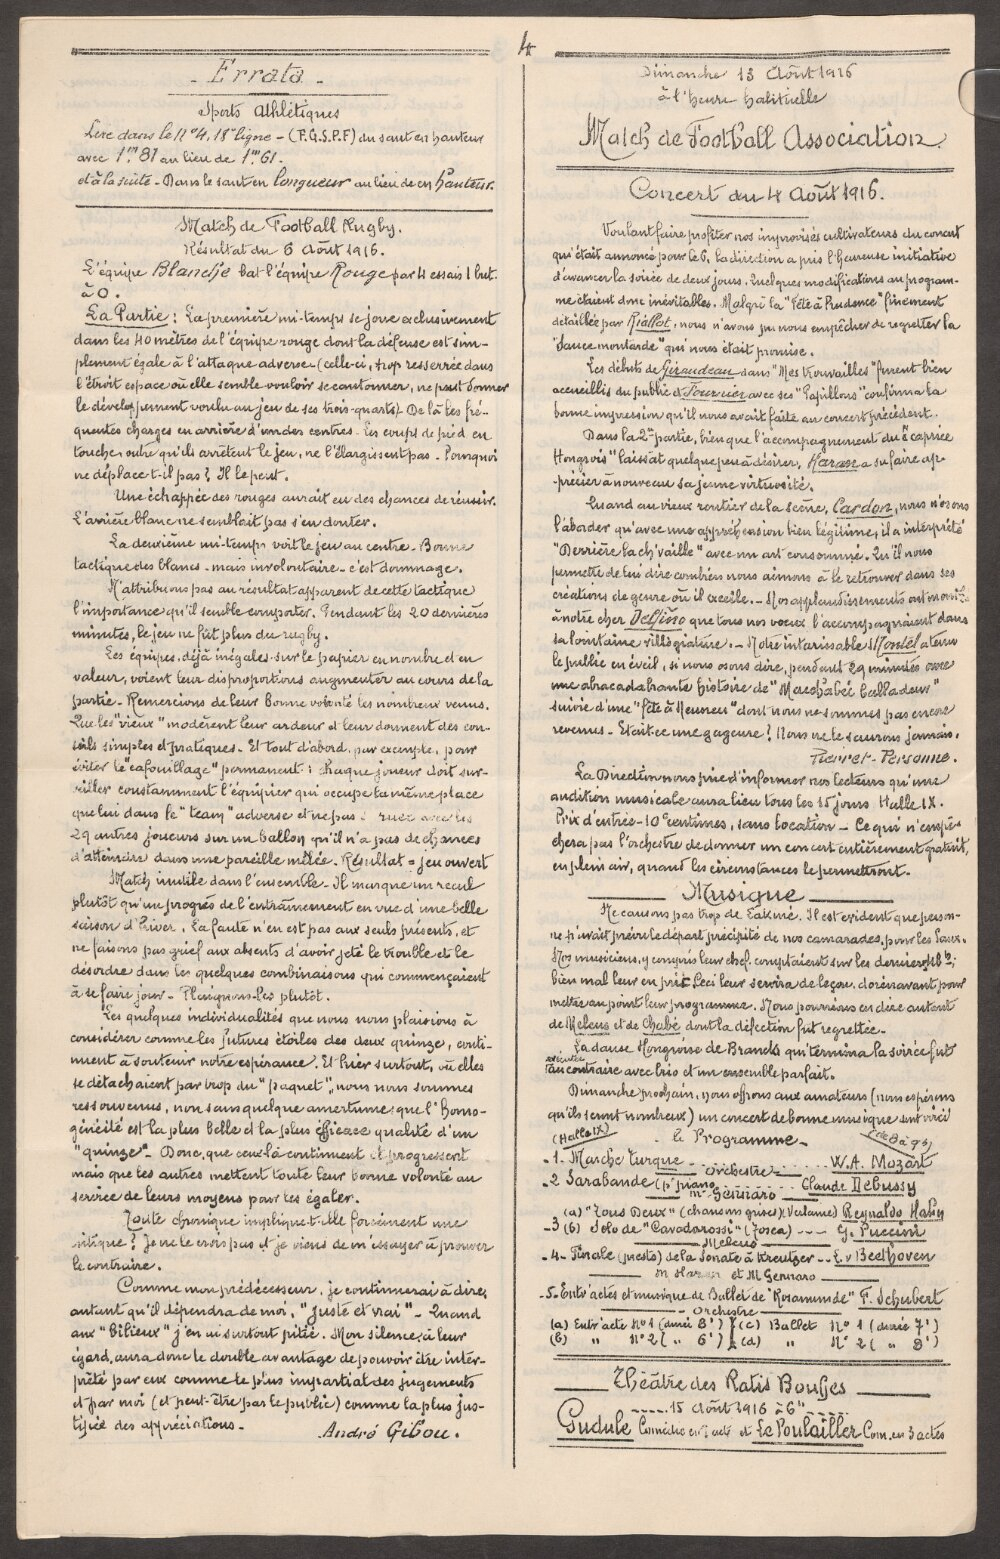 4
- Errata -
Sports Athlétiques
Lire dans le N°4, 18e ligne - (F.G.S.P.F) du saut en hauteur
avec 1m81 au lieu de 1m61.
et à la suite - Dans le saut en longueur au lieu de en hauteur.
Match de Football Rugby.
Résultat du 6 Août 1916.
L'équipe Blandje bat l'équipe Rouge par 4 essais 1 but
à 0.
La Partie : La première mi-temps se joue exclusivement
dans les 40 mètres de l'équipe rouge dont la défense est sim-
plement égale à l'attaque adverse - (celle-ci, trop resserrée dans
l'étroit espace où elle semble vouloir se cantonner, ne peut donner
le développement voulu au jeu de ses trois-quarts). De là les fré-
quentes charges en arrière d'un des centres. Les coups de pied en
touche, outre qu'ils arrêtent le jeu, ne l'élargissent pas - Pourquoi
ne déplace-t-il pas ? Il le peut.
Une échappée des rouges aurait eu des chances de réussir.
L'arrière blanc ne semblait pas s'en douter.
La deuxième mi-temps voit le jeu au centre - Bonne
tactique des blancs - mais involontaire - c'est dommage.
N'attribuons pas au résultat apparent de cette tactique
l'importance qu'il semble comporter. Pendant les 20 dernières
minutes, le jeu ne fut plus du rugby.
Les équipes, déjà inégales sur le papier en nombre et en
valeur, voient leur disproportions augmenter au cours de la
partie - Remercions de leur bonne volonté les nombreux venus.
Que les "vieux" modèrent leur ardeur et leur donnent des con-
seils simples et pratiques. Et tout d'abord, par exemple, pour
éviter le "cafouillage" permanent : chaque joueur doit sur-
veiller constamment l'équipier qui occupe la même place
que lui dans le "team" adverse et ne pas se ruer avec les
29 autres joueurs sur un ballon qu'il n'a pas de chances
d'atteindre dans une pareille mêlée. Résultat = jeu ouvert
Match inutile dans l'ensemble - Il marque un recul
plutôt qu'un progrès de l'entraînement en vue d'une belle
saison d'hiver. La faute n'en est pas aux seuls présents, et
ne faisons pas grief aux absents d'avoir jeté le trouble et le
désordre dans les quelques combinaisons qui commençaient
à se faire jour - Plaignons-les plutôt.
Les quelques individualités que nous nous plaisions à
considérer comme les futures étoiles des deux quinze, conti-
nuent à soutenir notre espérance. Et hier surtout, où elles
se détachaient par trop du "paquet", nous nous sommes
ressouvenus, non sans quelque amertume, que l'homo-
généité est la plus belle et la plus efficace qualité d'un
"quinze" - Donc, que ceux-là continuent et progressent
mais que les autres mettent toute leur bonne volonté au
service de leurs moyens pour les égaler.
Toute chronique implique-t-elle forcément une
critique ? Je ne le crois pas et je viens de m'essayer à prouver
le contraire.
Comme mon prédécesseur, je continuerai à dire,
autant qu'il dépendra de moi, "juste et vrai" - Quand
aux "bilieux" j'en ai surtout pitié. Mon silence, à leur
égard, aura donc le double avantage de pouvoir être inter-
prété par eux comme le plus impartial des jugements
et par moi (et peut-être par le public) comme la plus jus-
tifiée des appréciations -
André Gibou.
Dimanche 13 Août 1916
à l'heure habituelle
Match de Football Association
Concert du 4 Août 1916.
Voulant faire profiter nos improvisés cultivateurs du concert
qui était annoncé pour le 6, la direction a pris l'heureuse initiative
d'avancer la soirée de deux jours. Quelques modifications au program-
me étaient donc inévitables. Malgré la "Fête à Prudence" finement
detaillée par Riallot, nous n'avons pu nous empêcher de regretter la
"Sauce moutarde" qui nous était promise.
Les débuts de Giraudeau dans "Mes trouvailles" furent bien
accueillis du public & Fournier avec ses "Papillons" confirma la
bonne impression qu'il nous avait faite au concert précédent.
Dans la 2me partie, bien que l'accompagnement du "Caprice
Hongrois" laissât quelque peu à désirer, Haran a su faire ap-
précier à nouveau sa jeune virtuosité.
Quand au vieux routier de la scène, Cardon, nous n'osons
l'aborder qu'avec une appréhension bien légitime, il a interprété
"Derrière la ch'vaille" avec un art consommé. Qu'il nous
permette de lui dire combien nous aimons à le retrouver dans ses
créations de genre où il excelle. - Nos applaudissements ont
à notre cher Delfino que tous nos voeux l'accompagnaient dans
sa lointaine villégiature. - Notre intarissable Montel a tenu
le public en éveil, si nous osons dire, pendant 29 minutes avec
une abracadabrante histoire de "Macchabée balladeur"
suivie d'une "fête à Neuneu" dont nous ne sommes pas encore
revenus - Etait-ce une gageure ? Nous ne le saurons jamais.
Pierret-Personne.
La Direction nous prie d'informer nos lecteurs qu'une
audition musicale aura lieu tous les 15 jours Halle IX.
Prix d'entrée - 10 centimes, sans location - Ce qui n'empê-
chera pas l'orchestre de donner un concert entièrement gratuit,
en plein air, quand les circonstances le permettront.
Musique
Ne causons pas trop de Lakmé. Il est evident que person-
ne n'avait prévu le départ précipité de nos camarades, pour les Laux.
Nos musiciens, y compris leur chef comptaient sur les dernières 48h;
bien mal leur en prit. Ceci leur servira de leçon, dorénavant pour
mettre au point leur programme. Nous pourrions en dire autant
de Meleus et de Chabé dont la défection fut regrettée -
La danse Hongroise de Brancks qui termina la soirée fut
exécutée
au contraire avec brio et un ensemble parfait.
Dimanche prochain, nous offrons aux amateurs (nous espérons
qu'ils seront nombreux) un concert de bonne musique dont voici
(Halle IX) le Programme -
- 1. Marche Turque - Orchestre - W.A. Mozart
- 2 Sarabande (pr piano) Claude Debussy
Mr Gennaro
(a) "Tous Deux" (chansons grises) (Verlaine) Reynaldo Hahn
- 3 (b) Solo de "Cavadorossi" (Tosca) - G. Puccini
Meleus
- 4 - Finale (presto) de la Sonate à Kreutzer - L. v Beethoven
M Haran et M Gennaro
- 5 - Entr'actes et musique de Ballet de "Rosamunde" F. Schubert
Orchestre
(a) Entr'acte N°1 (durée 8') (c) Ballet N° 1 (durée 7')
(b) " N° 2 ( " 6') (d) " N° 2 ( " 8')
Théâtre des Ratis Boujes
15 Août 1916 à 6h
Gudule Comédie en 1 acte et Le Poulailler Com. en 3 actes